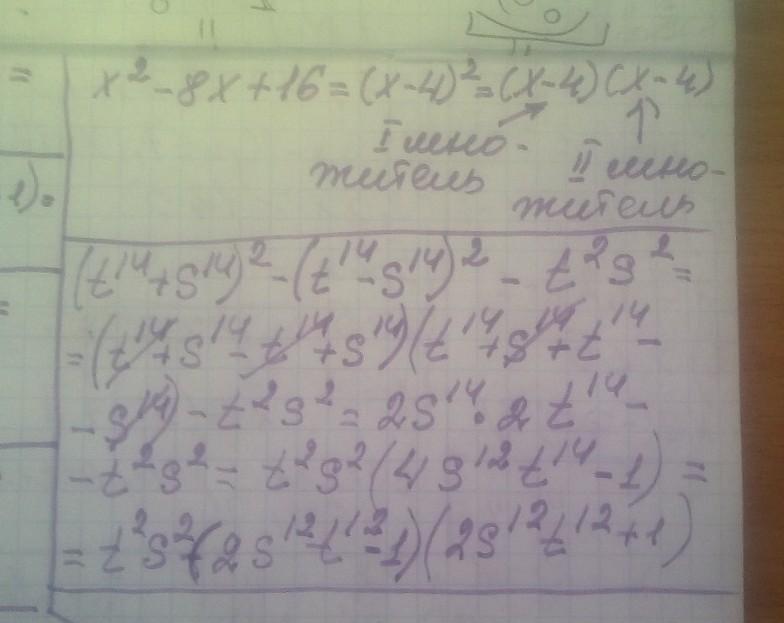 =
x² - 8x + 16 = (x-4)² = (x-4)(x-4)
I мно-
житель
II мно-
житель
1)=
(t¹⁴+s¹⁴)² - (t¹⁴-s¹⁴)² - t²s² =
= (t¹⁴+s¹⁴-t¹⁴+s¹⁴)(t¹⁴+s¹⁴+t¹⁴-
=
-s¹⁴) - t²s² = 2s¹⁴·2t¹⁴-
-t²s² = t²s²(4s¹²t¹⁴-1) =
= t²s²(2s¹²t¹²-1)(2s¹²t¹²+1)